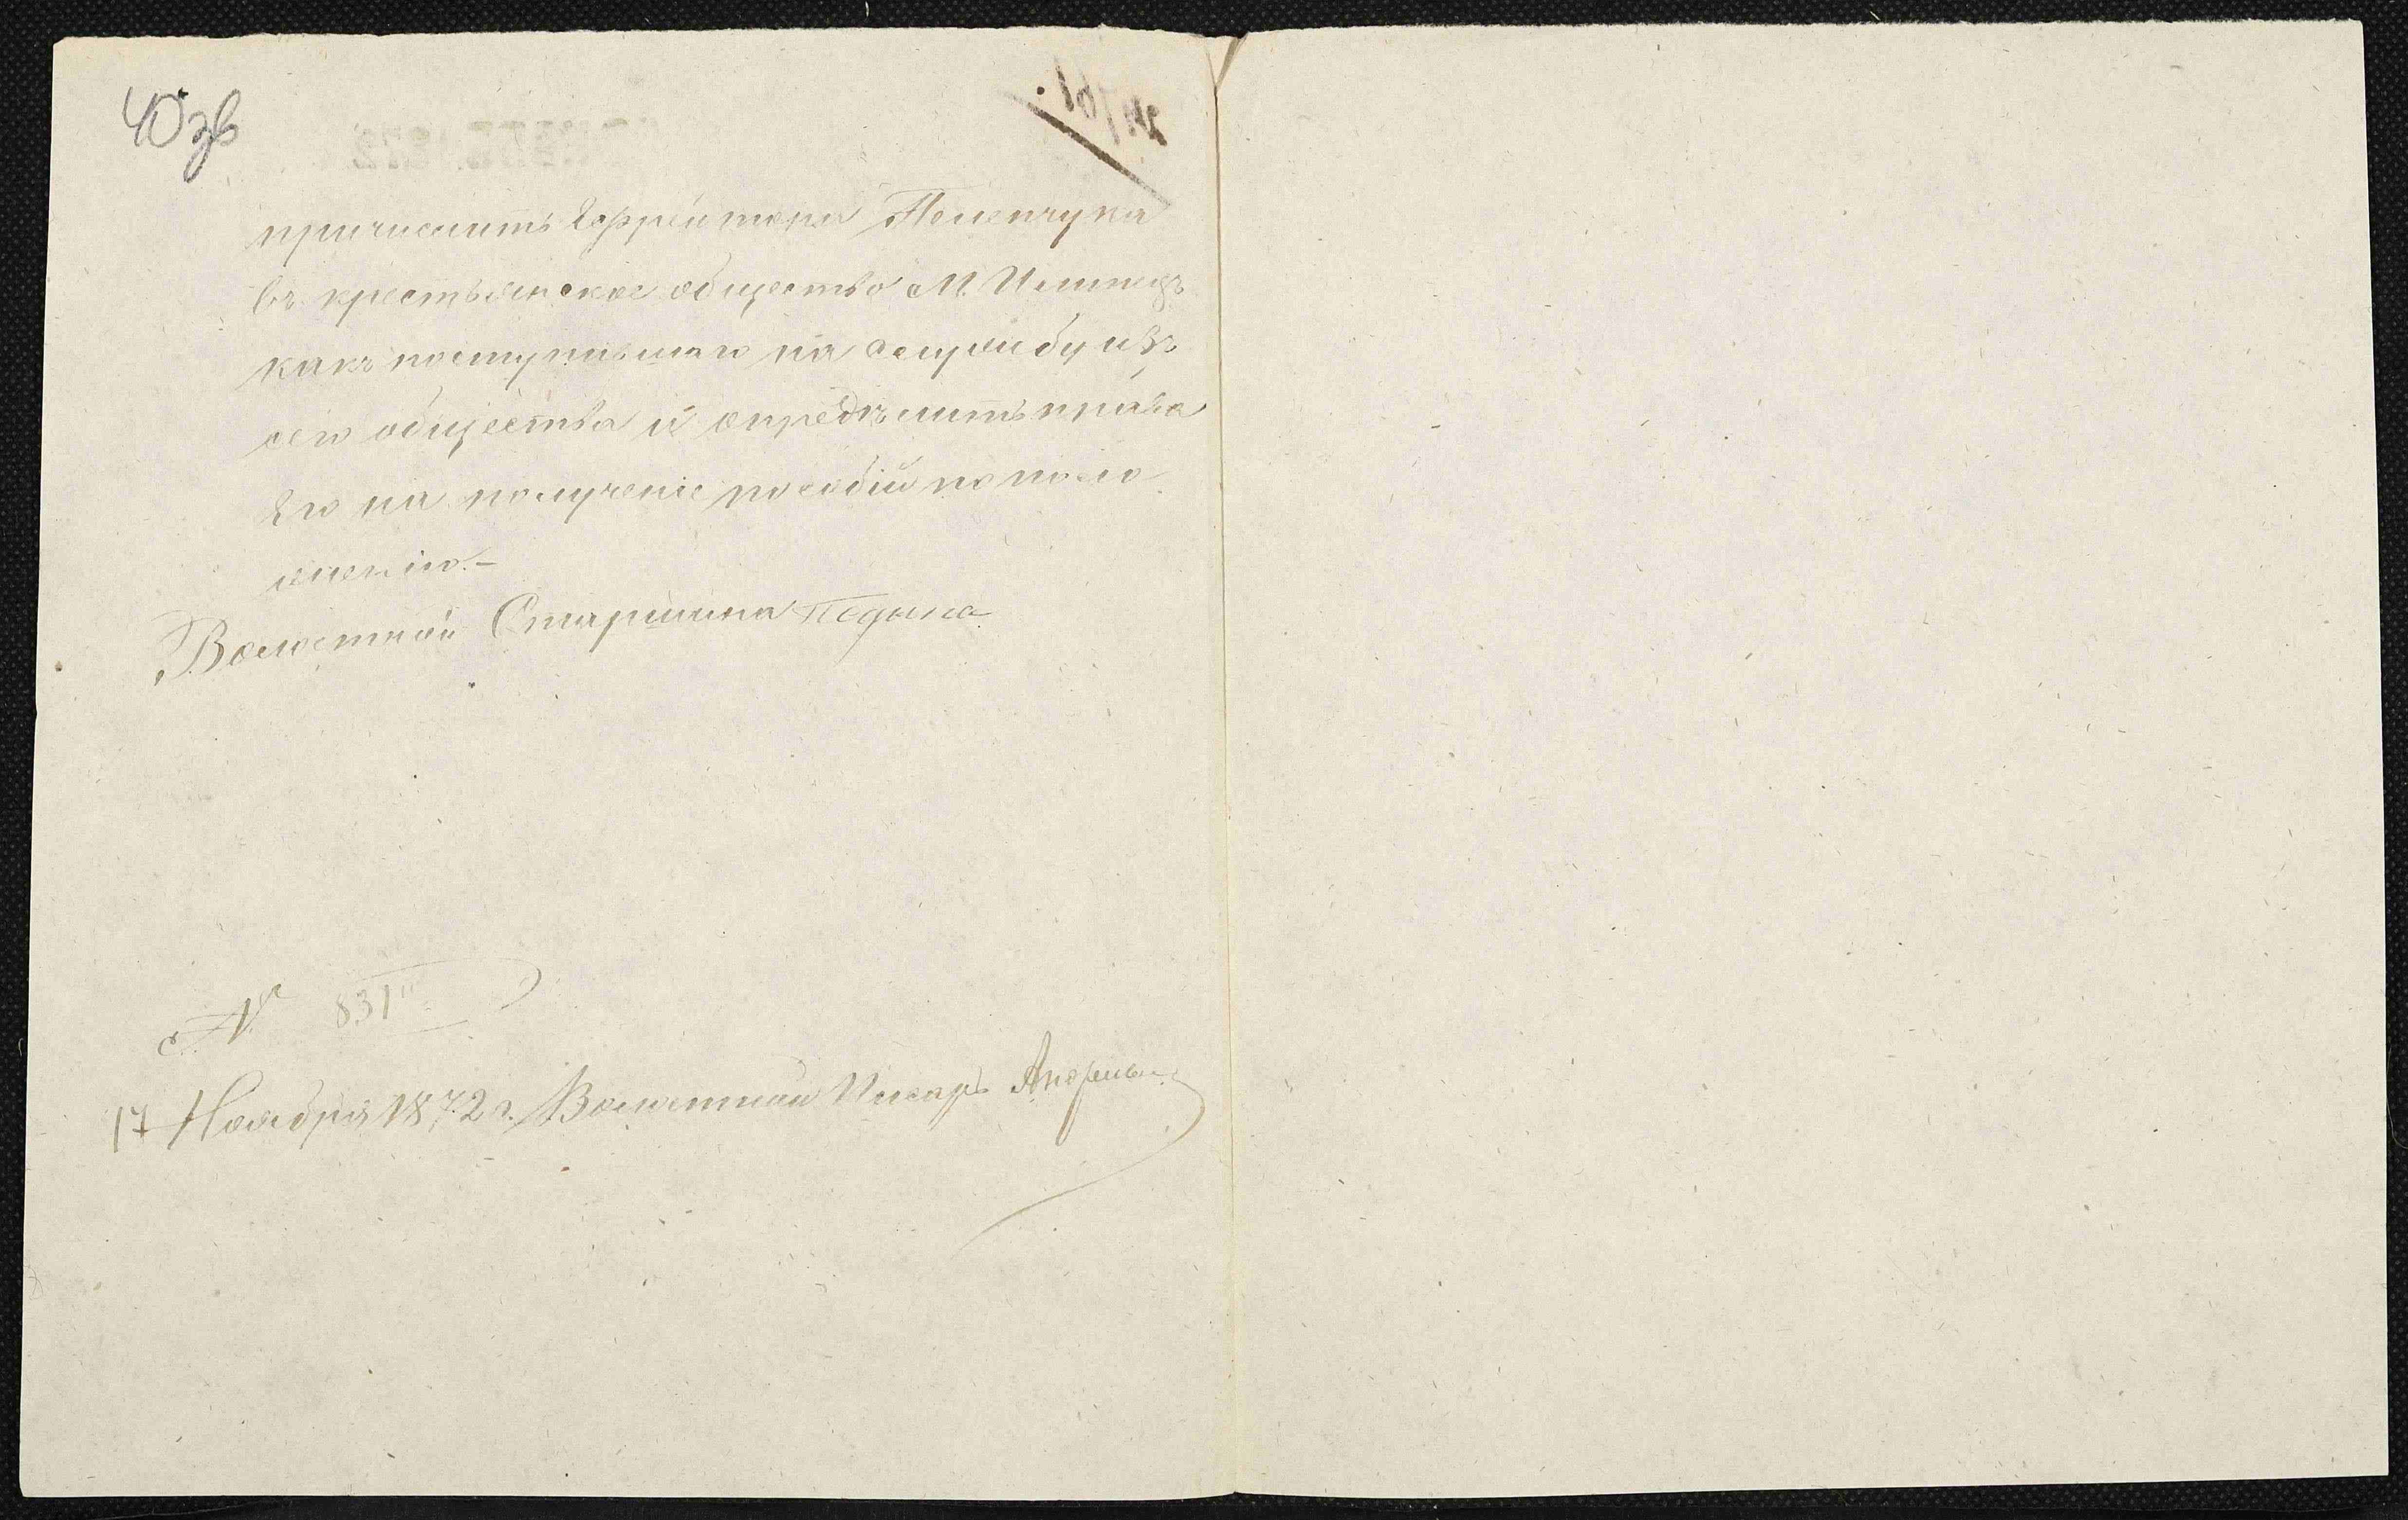 40 зв
причислить Ефрейтора Поленчука
въ крестьянское общество М.
какъ поступившаго на службу изъ
сего общества и опредѣлить права
Его на полученіе пособій по поло
женію.-
Волостной Старшина
№ 831
17 Ноября 1872 г. Волостной Писарь